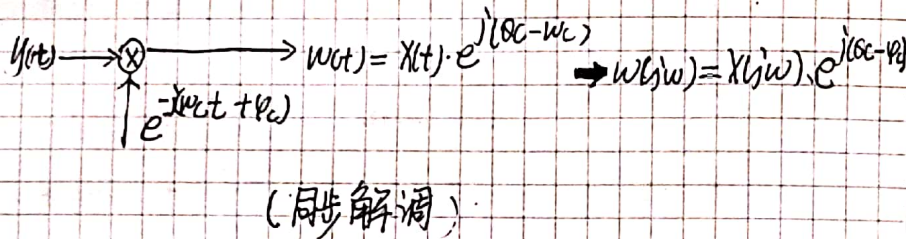 y(t) → ⊗ → w(t) = x(t)·e^{j(θc-wc)} ➡ W(jw) = X(jw)·e^{j(θc-φc)}
e^{-j(wct+φc)}
(同步解调)